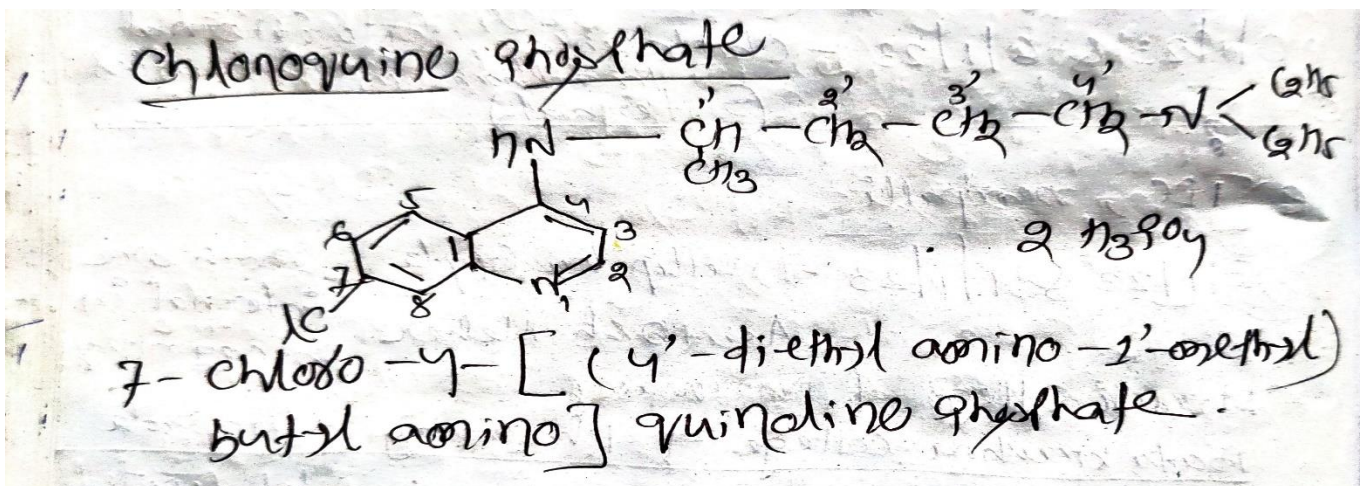 Chloroquine phosphate
HN — CH – CH2 – CH2 – CH2 – N < C2H5
1' 2' 3' 4' C2H5
CH3
5 4
6 3 . 2 H3PO4
7 2
8 N 1
Cl
7- chloro -4- [ (4'-di-ethyl amino -1'-methyl)
butyl amino ] quinoline phosphate .